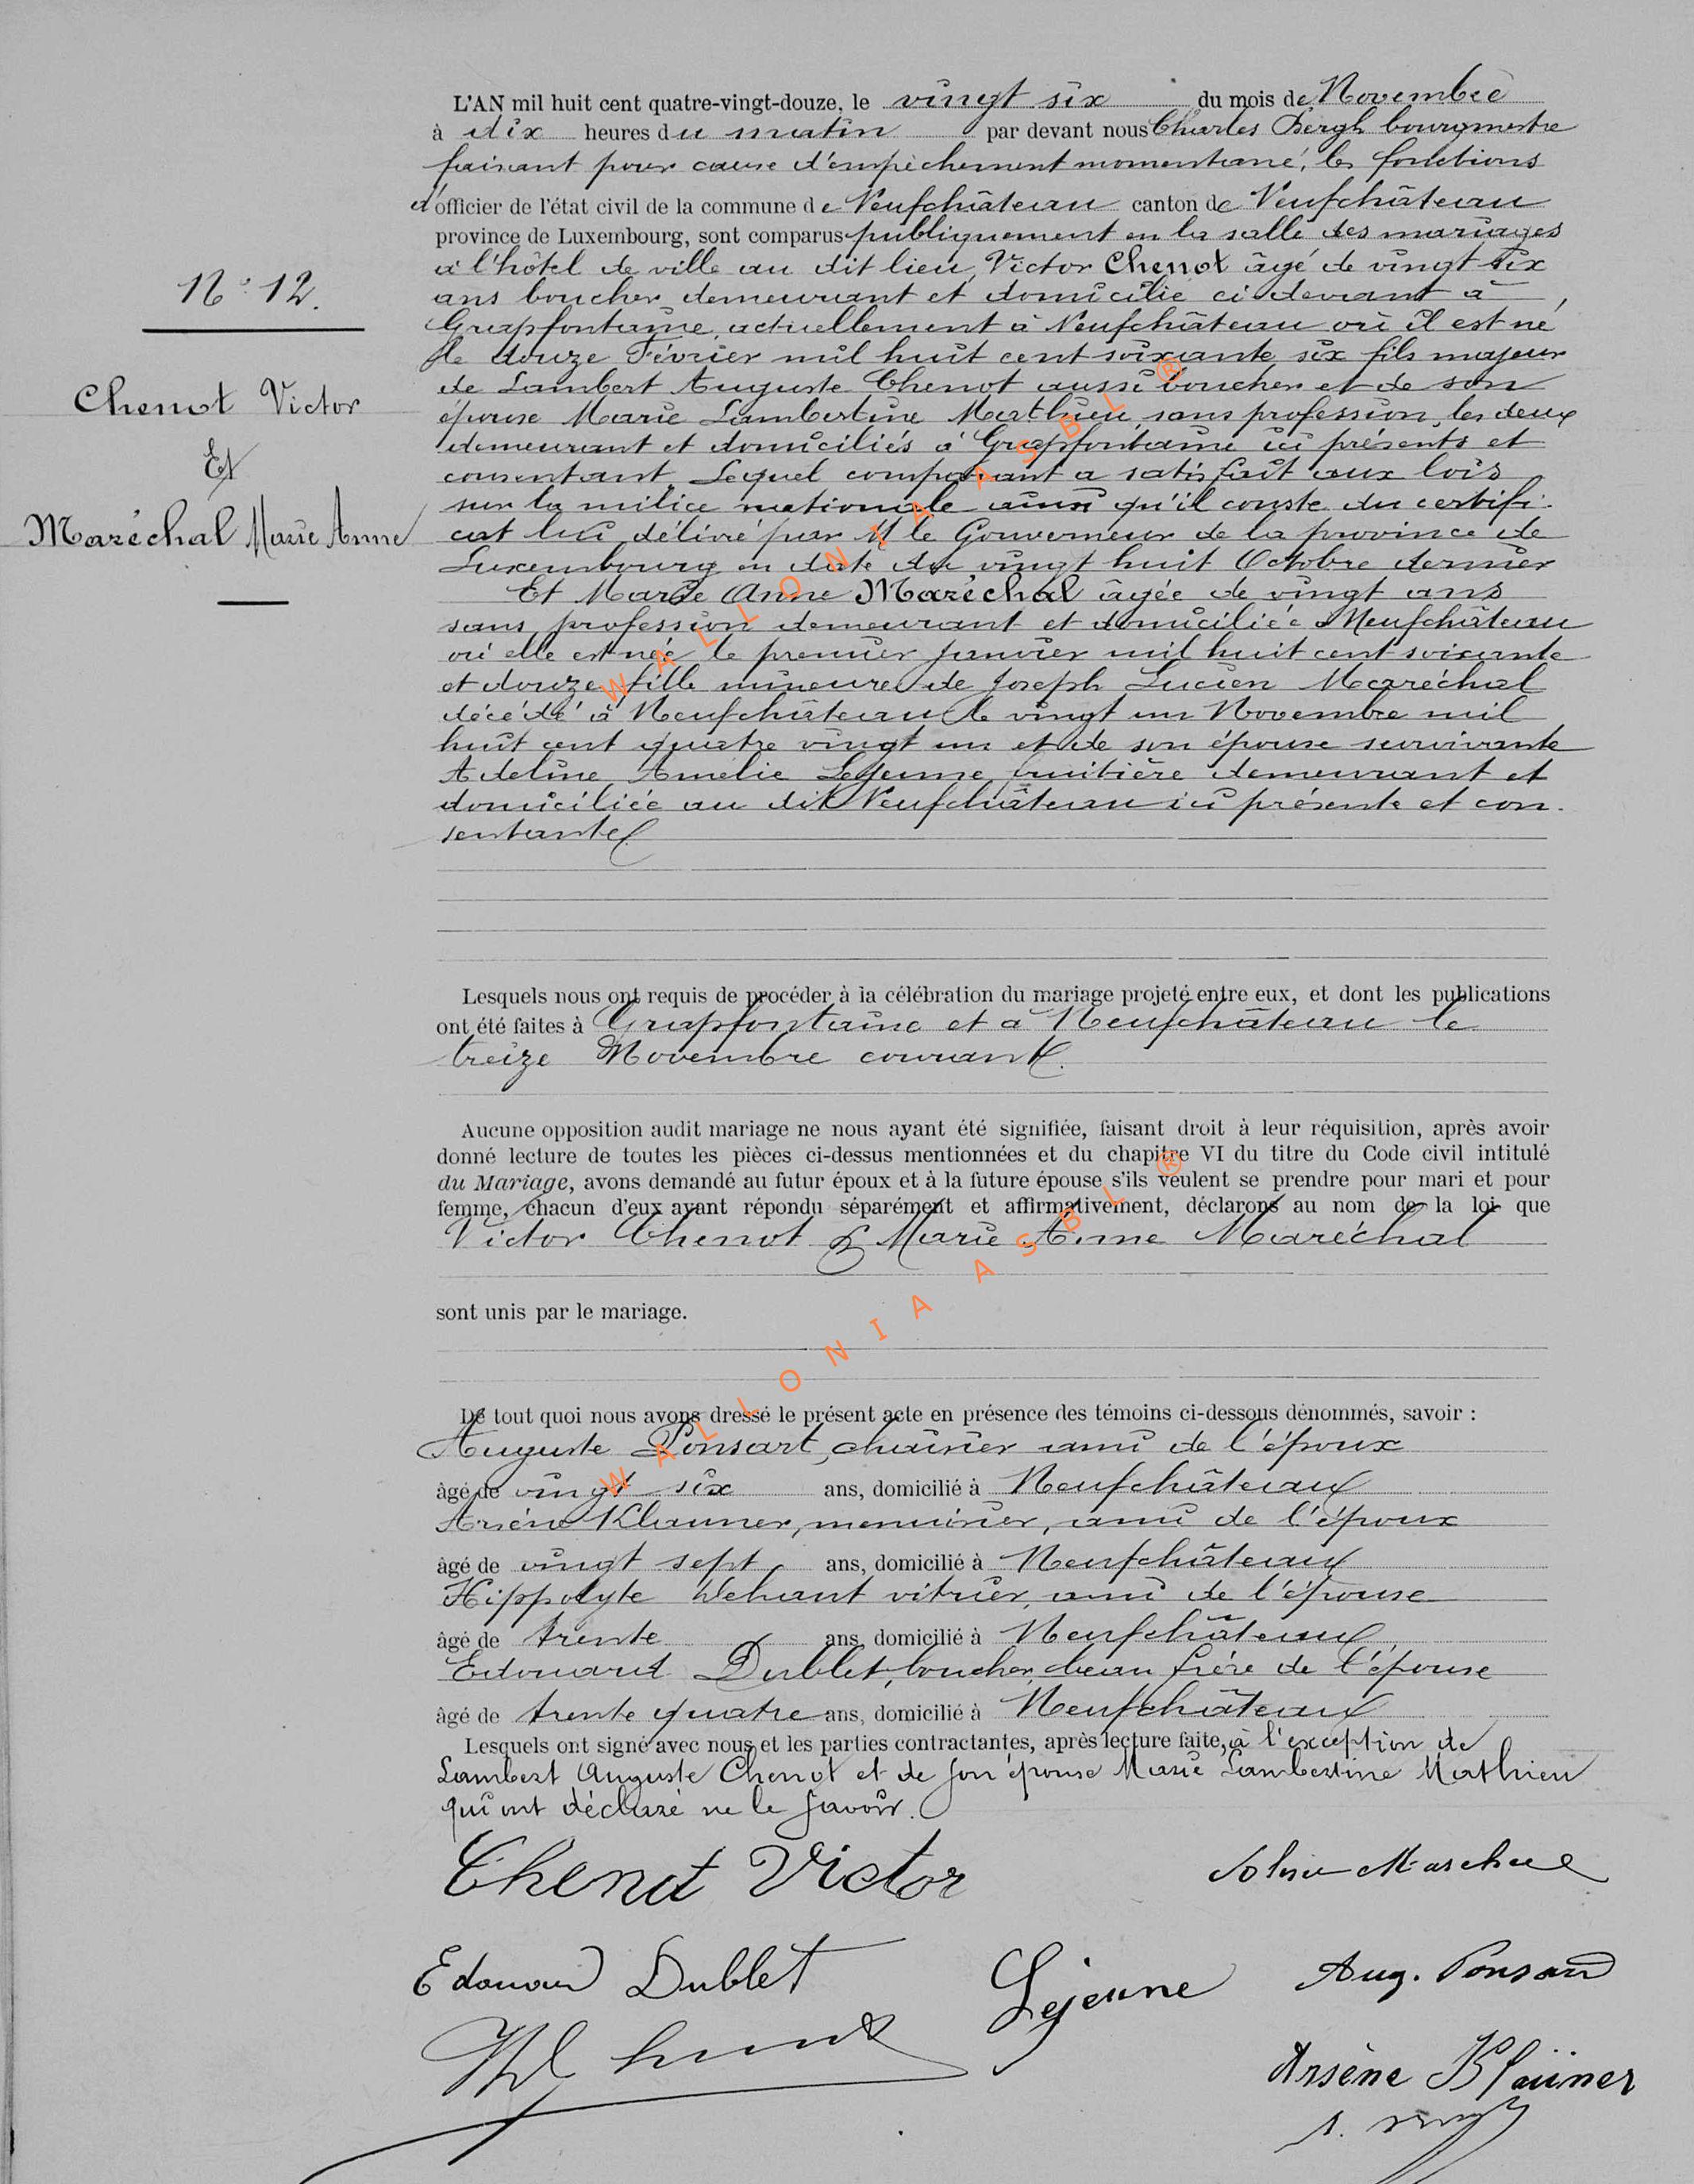 L'AN mil huit cent quatre-vingt-douze, le vingt six du mois de Novembre
à dix heures du matin par devant nous Charles Bergh bourgmestre
faisant pour cause d'empêchement momentané, les fonctions
d'officier de l'état civil de la commune de Neufchâteau canton de Neufchâteau
province de Luxembourg, sont comparus publiquement en la salle des mariages
à l'hôtel de ville au dit lieu, Victor Chenot âgé de vingt six
ans boucher demeurant et domicilié ci devant à
Grapfontaine, actuellement à Neufchâteau où il est né
le douze Février mil huit cent soixante six fils majeur
de Lambert Auguste Chenot aussi boucher et de son
épouse Marie Lambertine Mathieu, sans profession, les deux
demeurant et domiciliés à Grapfontaine ici présents et
consentant. Lequel comparant a satisfait aux lois
sur la milice nationale ainsi qu'il conste du certifi-
cat lui délivré par M le Gouverneur de la province de
Luxembourg en date du vingt huit Octobre dernier
Et Marie Anne Maréchal âgée de vingt ans
sans profession demeurant et domiciliée à Neufchâteau
où elle est née le premier Janvier mil huit cent soixante
et douze, fille mineure de Joseph Lucien Maréchal
décédé à Neufchâteau le vingt un Novembre mil
huit cent quatre vingt un et de son épouse survivante
Adeline Amélie Lejeune, fruitière demeurant et
domiciliée au dit Neufchâteau ici présente et con-
sentante.
N° 12.
Chenot Victor
Et
Maréchal Marie Anne
Lesquels nous ont requis de procéder à la célébration du mariage projeté entre eux, et dont les publications
ont été faites à Grapfontaine et à Neufchâteau le
treize Novembre courant.
Aucune opposition audit mariage ne nous ayant été signifiée, faisant droit à leur réquisition, après avoir
donné lecture de toutes les pièces ci-dessus mentionnées et du chapitre VI du titre du Code civil intitulé
du Mariage, avons demandé au futur époux et à la future épouse s'ils veulent se prendre pour mari et pour
femme, chacun d'eux ayant répondu séparément et affirmativement, déclarons au nom de la loi que
Victor Chenot & Marie Anne Maréchal
sont unis par le mariage.
De tout quoi nous avons dressé le présent acte en présence des témoins ci-dessous dénommés, savoir :
Auguste Ponsart, chaisier ami de l'époux
âgé de vingt six ans, domicilié à Neufchâteau
Arsène Klauner, menuisier, ami de l'époux
âgé de vingt sept ans, domicilié à Neufchâteau
Hippolyte Dehant vitrier, ami de l'épouse
âgé de trente ans, domicilié à Neufchâteau
Edouard Dublet, boucher, beau frère de l'épouse
âgé de trente quatre ans, domicilié à Neufchâteau
Lesquels ont signé avec nous et les parties contractantes, après lecture faite, à l'exception de
Lambert Auguste Chenot et de son épouse Marie Lambertine Mathieu
qui ont déclaré ne le savoir.
Chenot Victor
Edouard Dublet
Lejeune
Aug. Ponsard
Arsène Klaüner
WALLONIA ASBL ®
WALLONIA ASBL ®